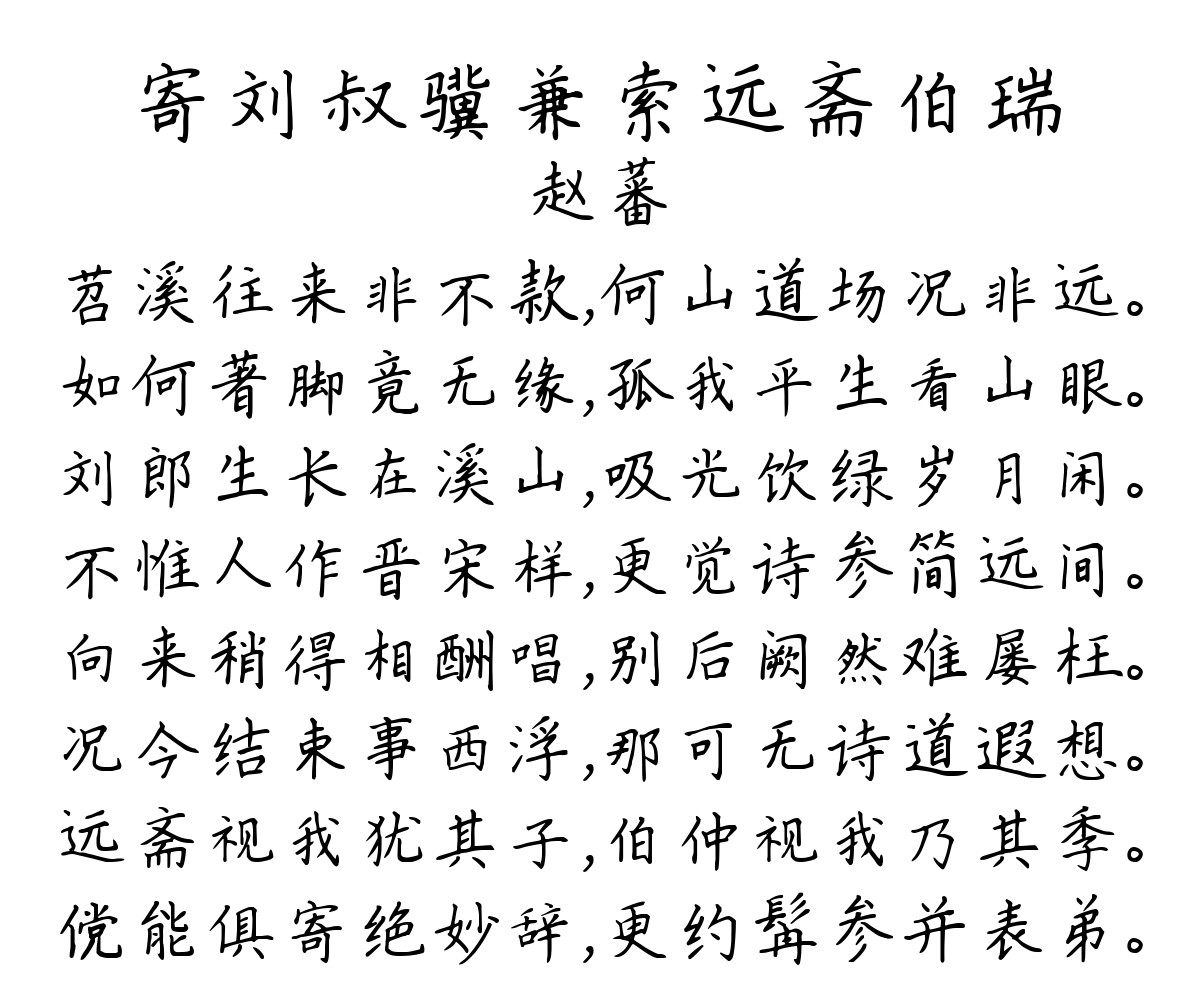 寄刘叔骥兼索远斋伯瑞
赵蕃
苕溪往来非不款,何山道场况非远。
如何著脚竟无缘,孤我平生看山眼。
刘郎生长在溪山,吸光饮绿岁月闲。
不惟人作晋宋样,更觉诗参简远间。
向来稍得相酬唱,别后阙然难屡枉。
况今结束事西浮,那可无诗道遐想。
远斋视我犹其子,伯仲视我乃其季。
傥能俱寄绝妙辞,更约髯参并表弟。